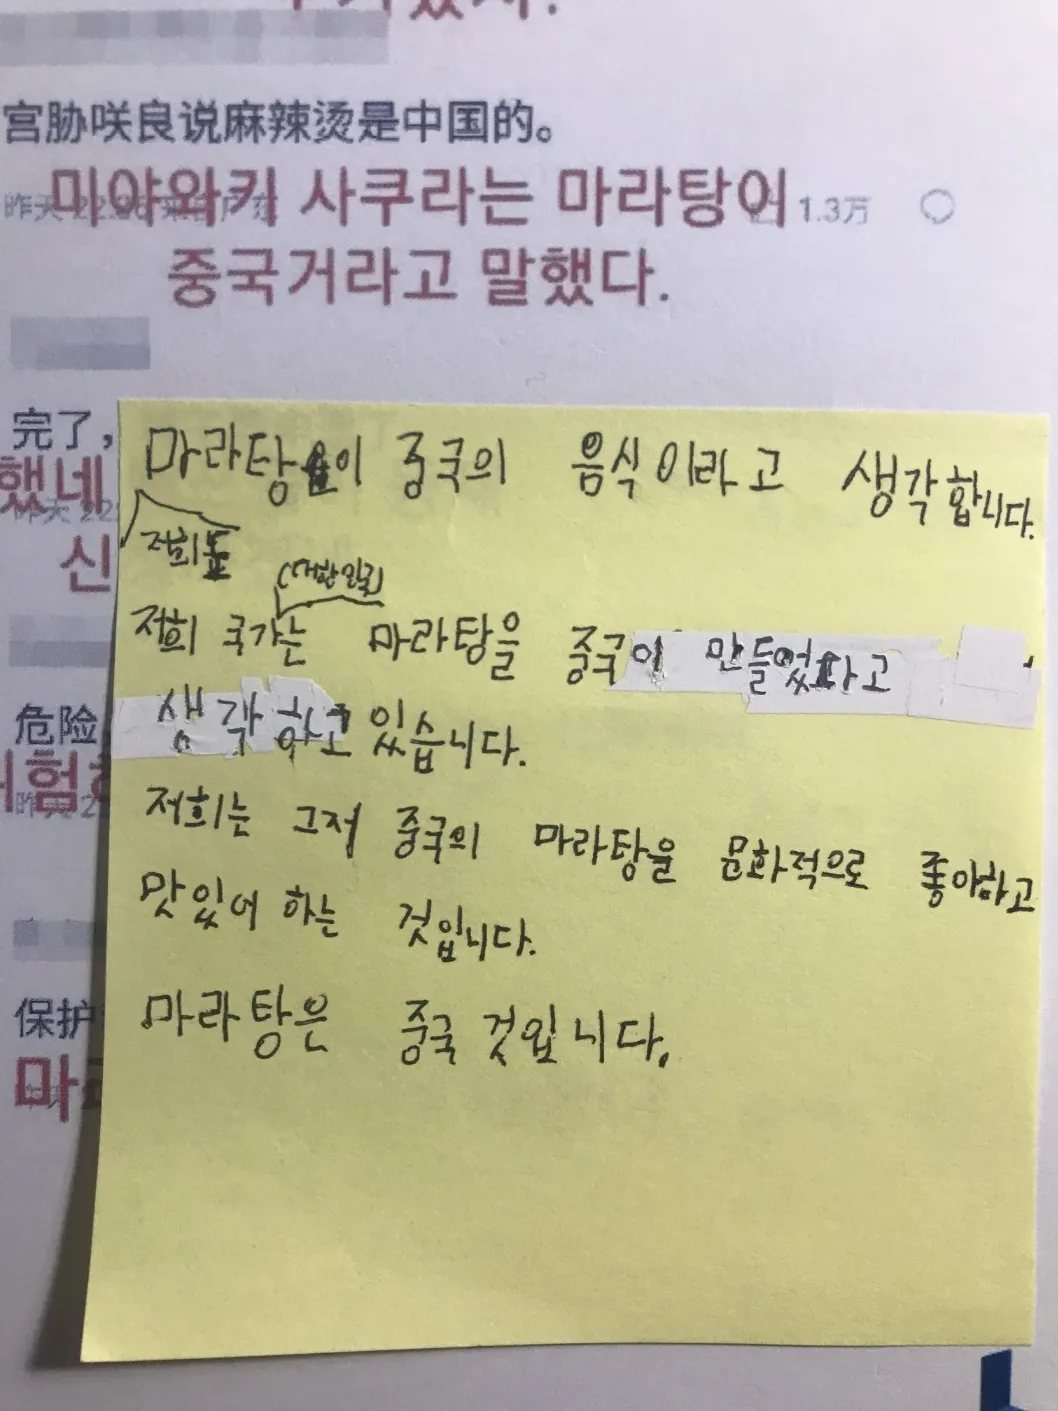 宫胁咲良说麻辣烫是中国的。
미야와키 사쿠라는 마라탕이
昨天 1.3万
중국거라고 말했다.
完了，
했네
昨天 22
신
마라탕이 중국의 음식이라고 생각합니다.
저희도
저희 국가는 마라탕을 중국이 만들었다고
생각하고 있습니다.
危险
험
저희는 그저 중국의 마라탕을 문화적으로 좋아하고
맛있어 하는 것입니다.
마라탕은 중국 것입니다.
保护
마